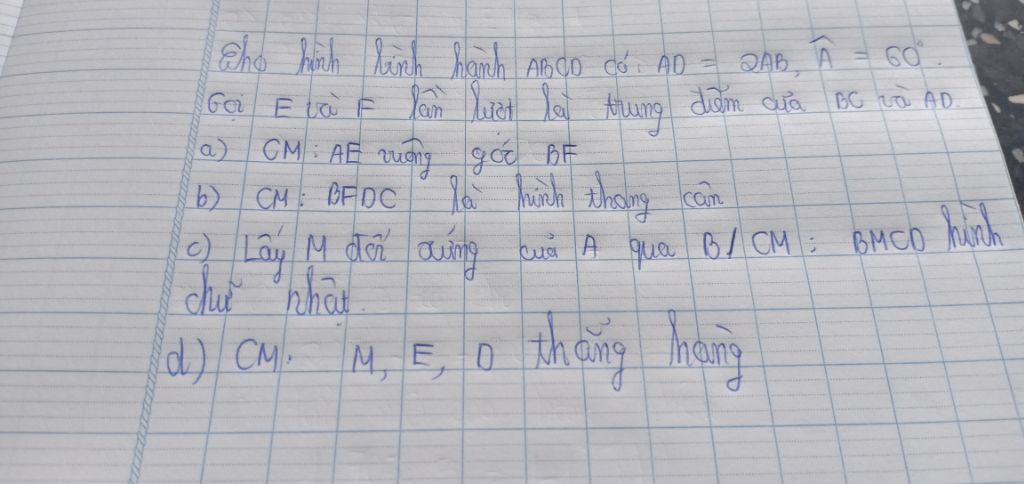 Cho hình bình hành ABCD có: AD = 2AB, Â = 60°.
Gọi E và F lần lượt là trung điểm của BC và AD.
a) CM: AE vuông góc BF
b) CM: BFDC là hình thang cân
c) Lấy M đối xứng của A qua B/CM: BMCD hình
chữ nhật.
d) CM: M, E, D thẳng hàng